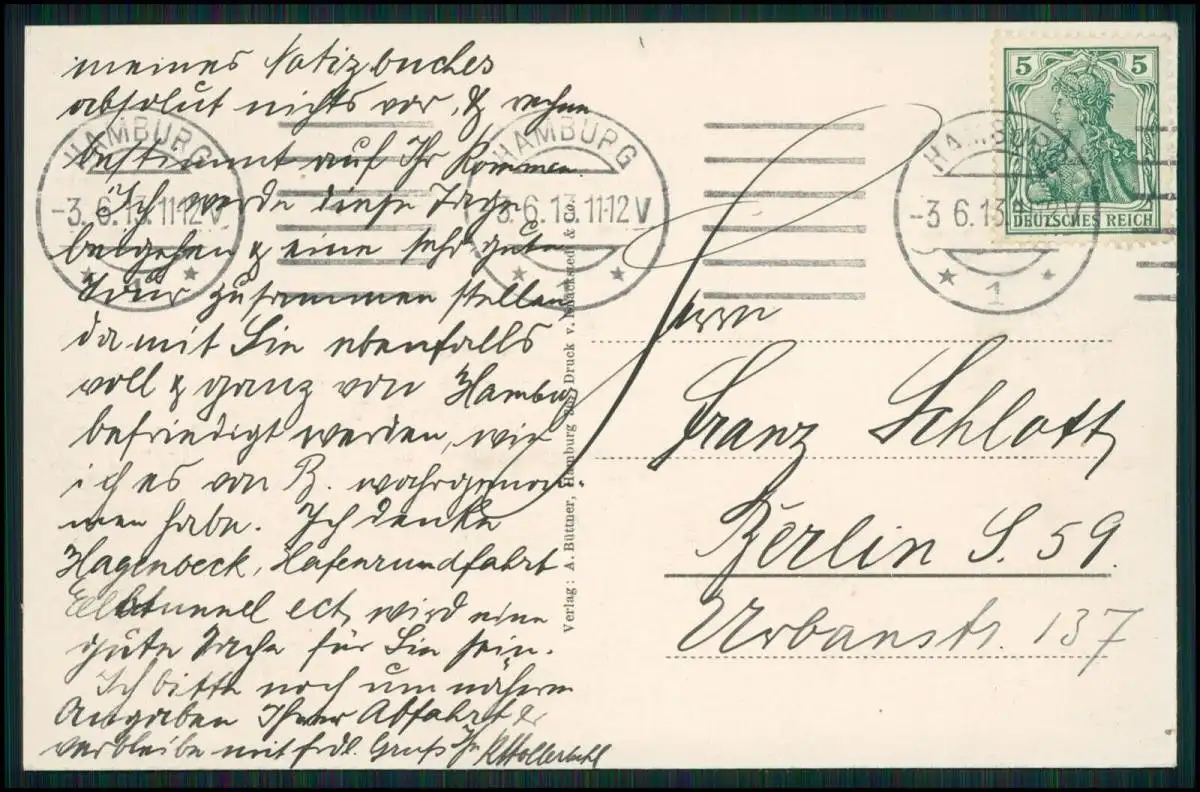 meines Notizbuches
absolut nichts vor, & rechne
bestimmt auf Ihr Kommen.
Ich werde diese Tage
& eine sehr gute
Tour zusammen stellen,
damit Sie ebenfalls
voll & ganz von Hambg
befriedigt werden, wie
ich es von B. wahrgenom-
men habe. Ich denke
Hagenbeck, Hafenrundfahrt
Elbtunnel ect, wird eine
gute Sache für Sie sein.
Ich bitte noch um nähere
Angaben Ihrer Abfahrt &
verbleibe mit frdl. Gruß Ihr
HAMBURG
-3.6.13.11-12V
HAMBURG
-3.6.13.11-12V
HAMBURG
-3.6.13.11-12V
1
5 5
DEUTSCHES REICH
Verlag: A. Büttner, Hamburg Druck v. Knackstedt & Co.
Herrn
Franz Schlott
Berlin S. 59.
Urbanstr. 137